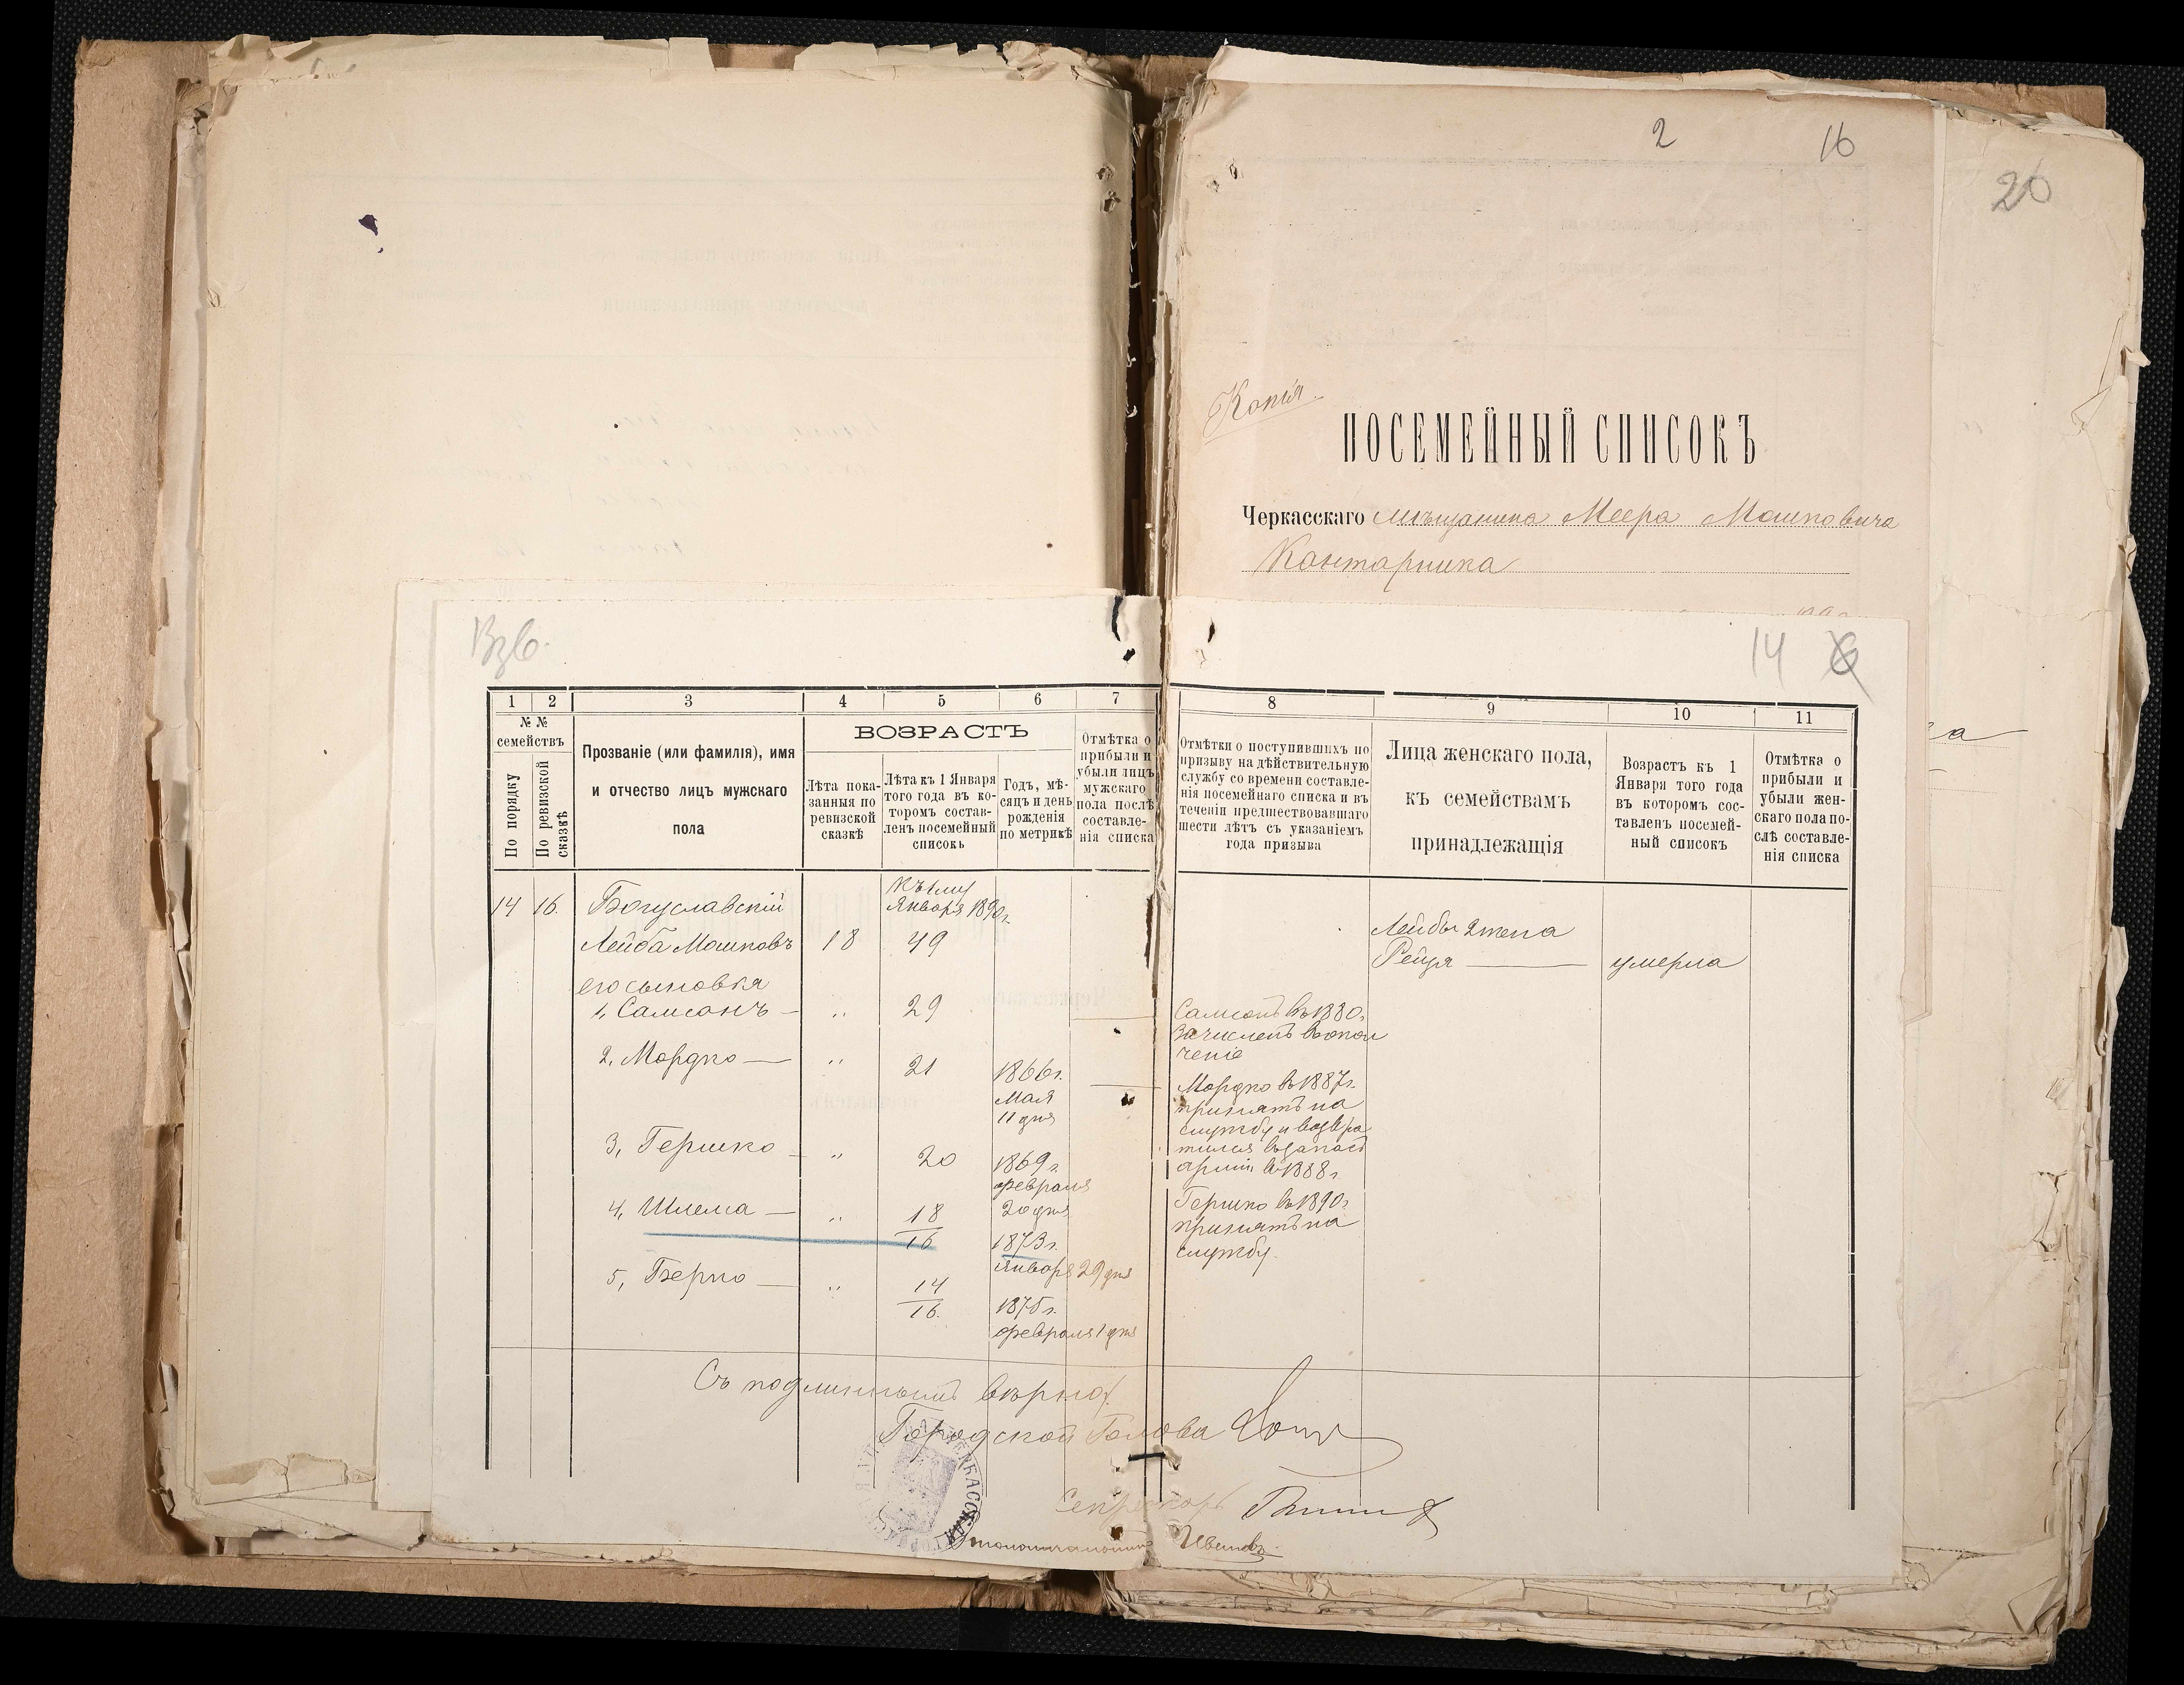 2 16
20
Копія.
ПОСЕМЕЙНЫЙ СПИСОКЪ
Черкасскаго мѣщанина Меера Мошковича
Кантарника
Взв.
14
1 2 3 4 5 6 7 8 9 10 11
№ №
семействъ
По порядку
По ревизской
сказкѣ
Прозваніе (или фамилія), имя
и отчество лицъ мужскаго
пола
ВОЗРАСТЪ
Лѣта пока-
занныя по
ревизской
сказкѣ
Лѣта къ 1 Января
того года въ ко-
торомъ состав-
ленъ посемейный
списокъ
Годъ, мѣ-
сяцъ и день
рожденія
по метрикѣ
Отмѣтка о
прибыли и
убыли лицъ
мужскаго
пола послѣ
составле-
нія списка
Отмѣтки о поступившихъ по
призыву на дѣйствительную
службу со времени составле-
нія посемейнаго списка и въ
теченіи предшествовавшаго
шести лѣтъ съ указаніемъ
года призыва
Лица женскаго пола,
къ семействамъ
принадлежащія
Возрастъ къ 1
Января того года
въ которомъ сос-
тавленъ посемей-
ный списокъ
Отмѣтка о
прибыли и
убыли жен-
скаго пола по-
слѣ составле-
нія списка
14 16. Богуславскій
Января 1890 г.
Лейба Мошковъ 18 49
его сыновья
1, Самсонъ — „ 29
2, Мордко — „ 21 1866 г.
Мая
11 дня
3, Гершко — „ 20 1869 г.
февраля
20 дня
4, Шлема — „ 18
16
1873 г.
января 29 дня
5, Берко — „ 14
16.
1875 г.
февраля 1 дня
Самсонъ въ 1880 г.
зачисленъ въ опол
ченіе
Мордко въ 1887 г.
принятъ на
службу и возвра
тился въ запасъ
арміи въ 1888 г.
Гершко въ 1890 г.
принятъ на
службу.
Лейбы 2 жена
Рейзя — умерла
Съ подлиннымъ вѣрно:
Городской Голова
Секретарь